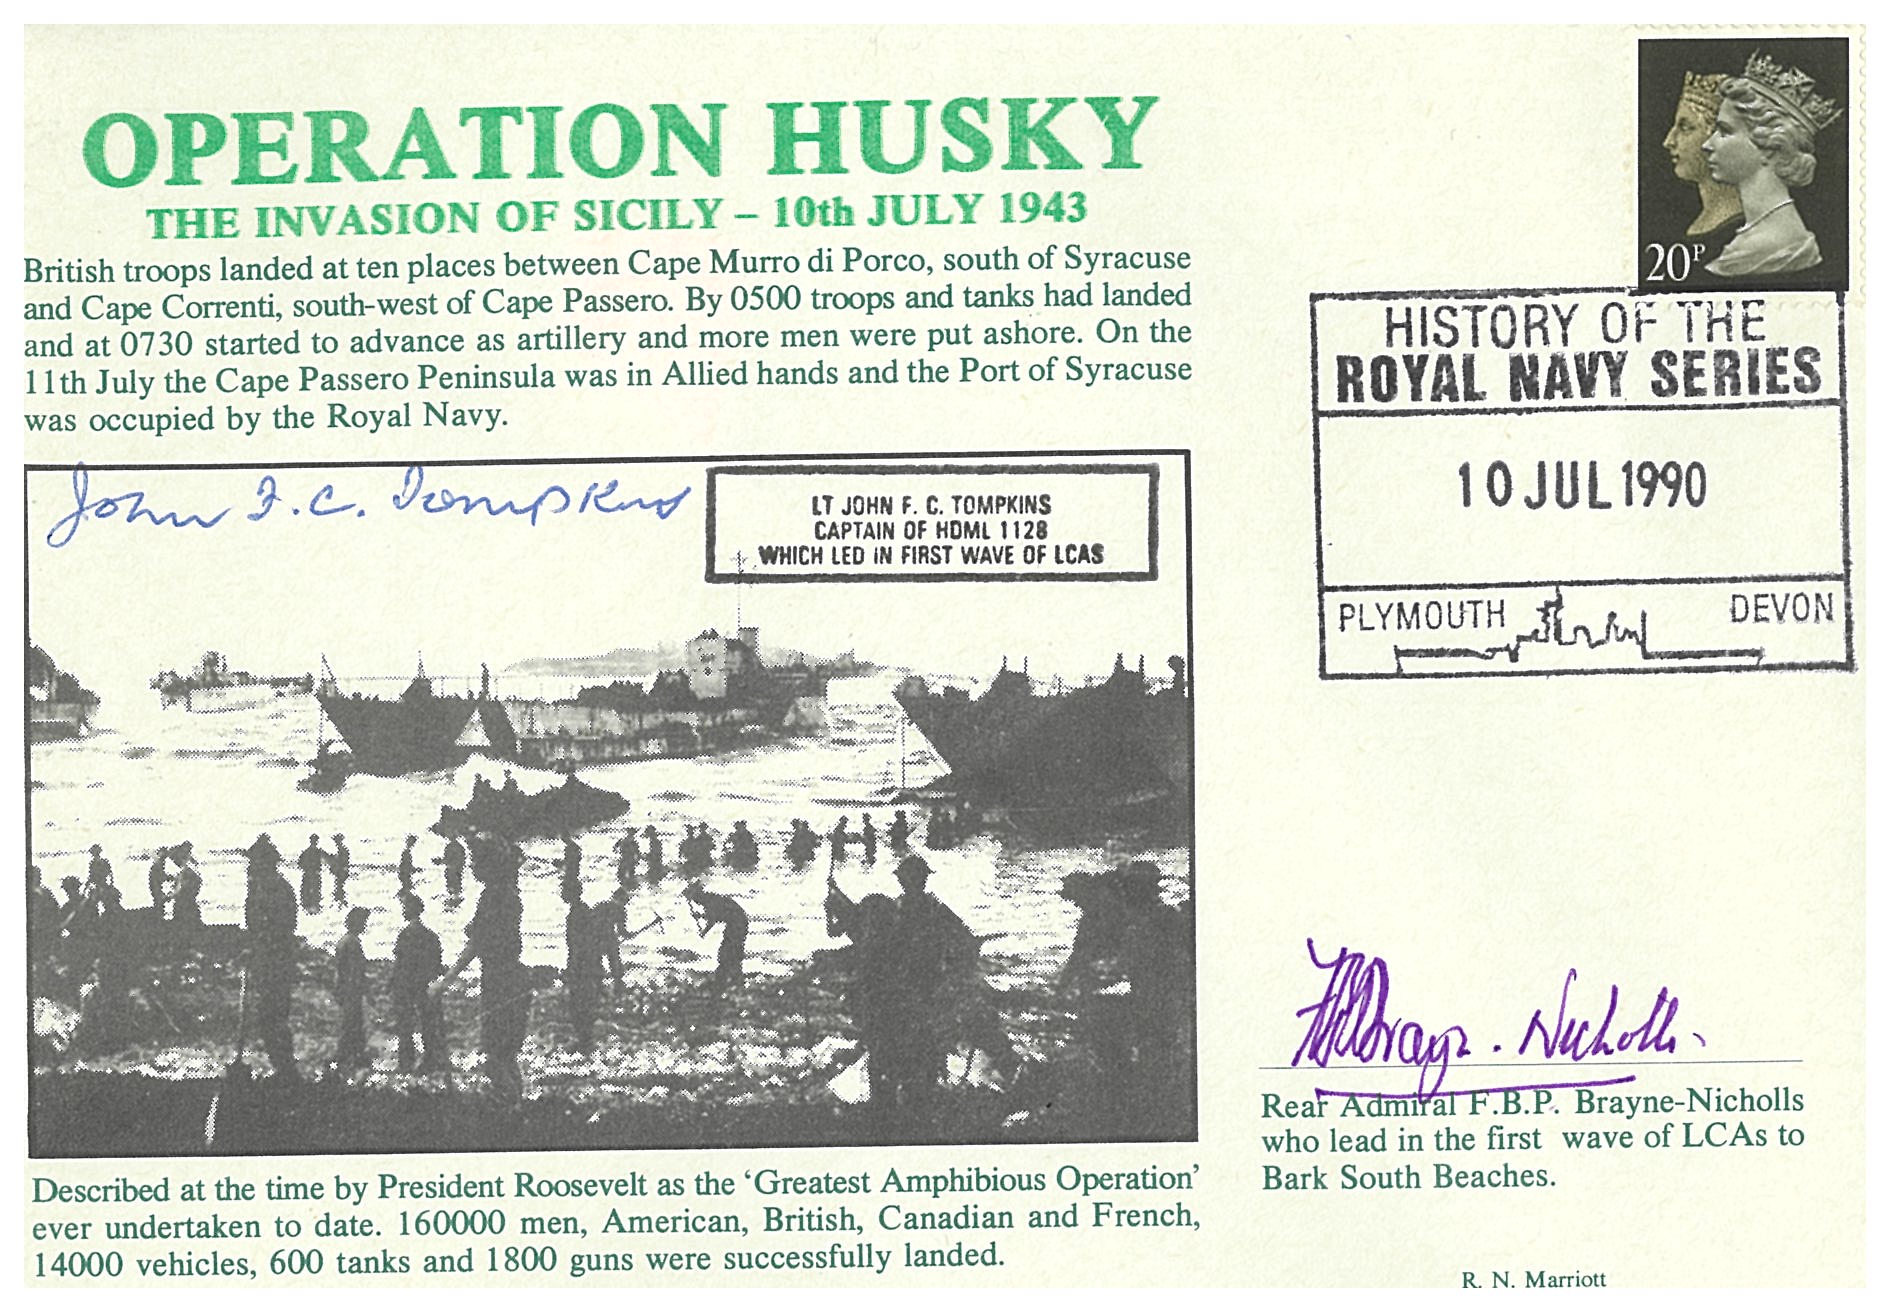 OPERATION HUSKY
THE INVASION OF SICILY – 10th JULY 1943
British troops landed at ten places between Cape Murro di Porco, south of Syracuse
and Cape Correnti, south-west of Cape Passero. By 0500 troops and tanks had landed
and at 0730 started to advance as artillery and more men were put ashore. On the
11th July the Cape Passero Peninsula was in Allied hands and the Port of Syracuse
was occupied by the Royal Navy.
John F.C. Tompkins
LT JOHN F. C. TOMPKINS
CAPTAIN OF HDML 1128
WHICH LED IN FIRST WAVE OF LCAS
Described at the time by President Roosevelt as the ‘Greatest Amphibious Operation’
ever undertaken to date. 160000 men, American, British, Canadian and French,
14000 vehicles, 600 tanks and 1800 guns were successfully landed.
20P
HISTORY OF THE
ROYAL NAVY SERIES
10 JUL 1990
PLYMOUTH DEVON
FBPBrayne-Nicholls.
Rear Admiral F.B.P. Brayne-Nicholls
who lead in the first wave of LCAs to
Bark South Beaches.
R. N. Marriott